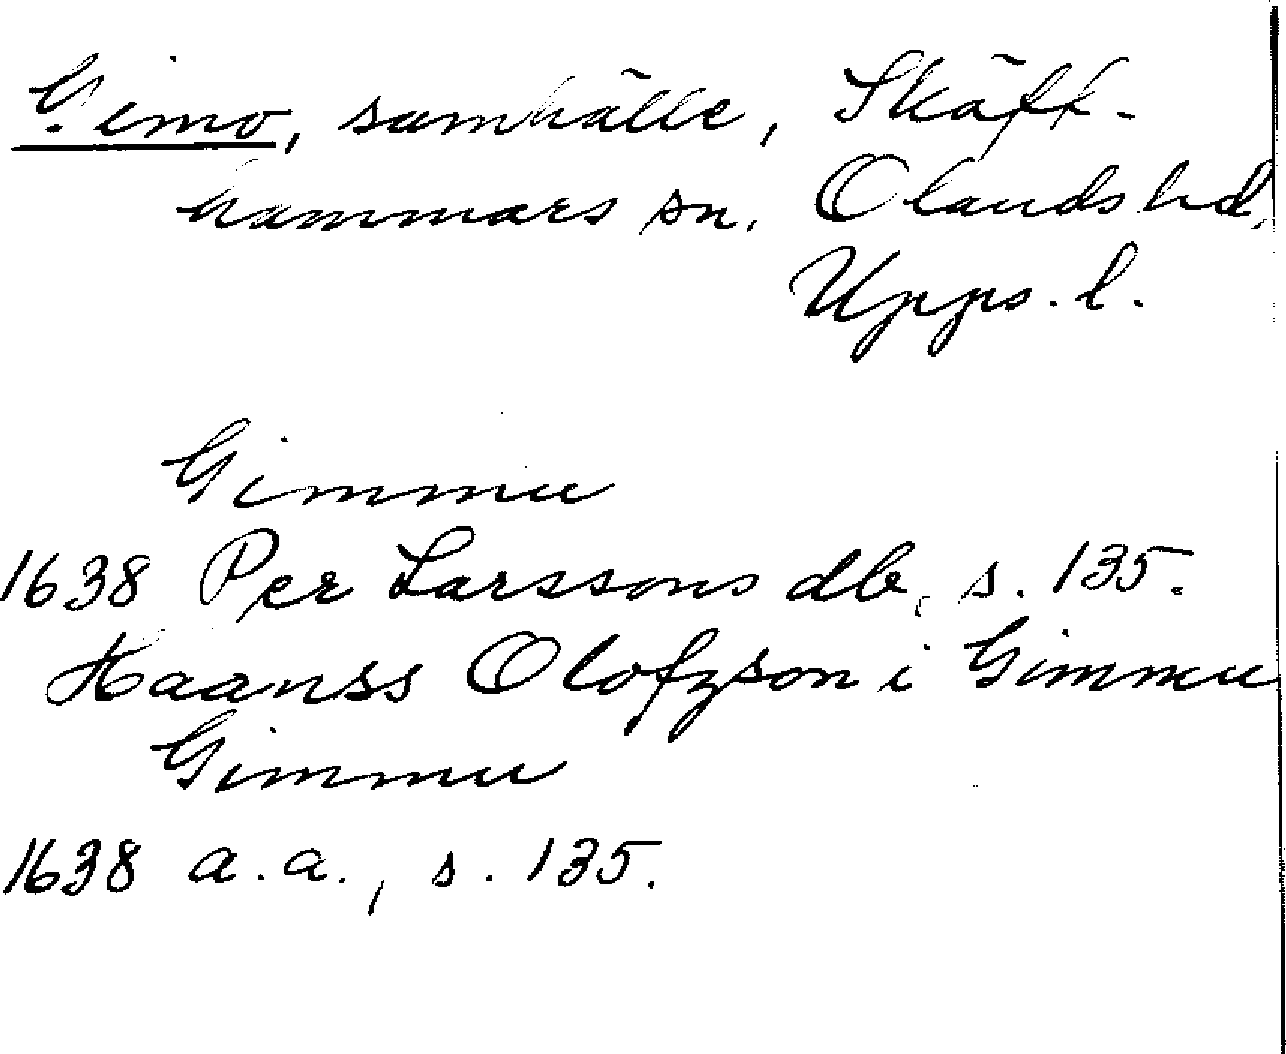 Gimo, samhälle, Skäft-
hammars sn. Olands hd,
Upps. l.
Gimmu
1638 Per Larssons db, s. 135.
Haanss Olofzson i Gimmu
Gimmu
1638 a.a., s. 135.